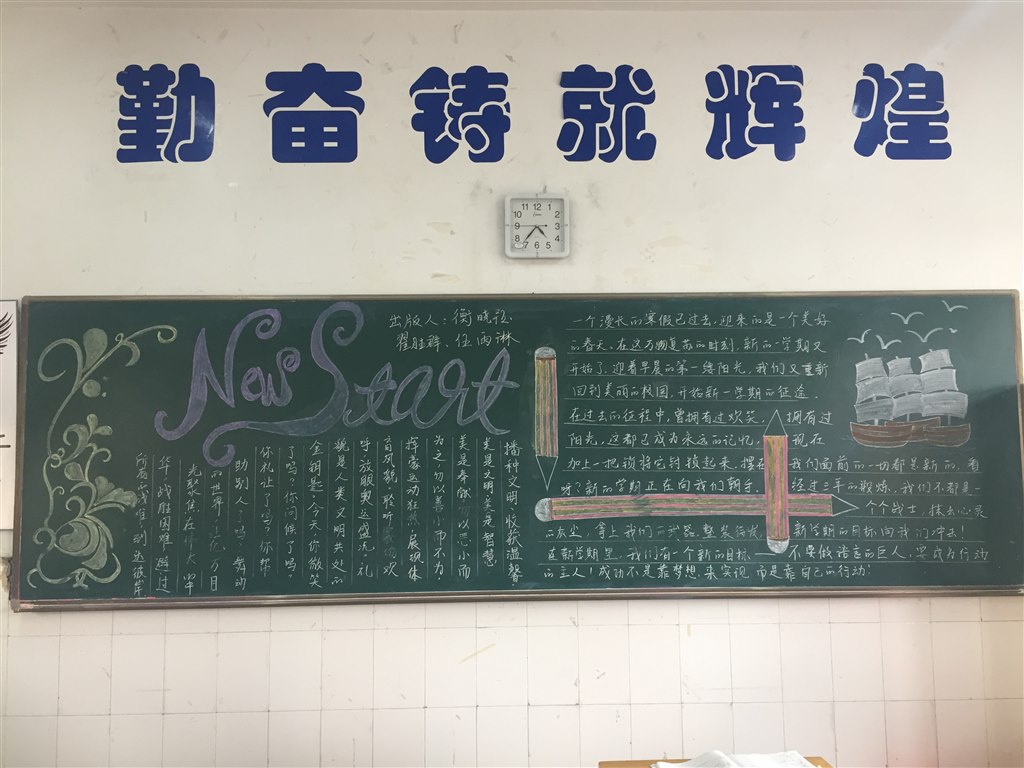 勤奋铸就辉煌
11 12 1
10 2
9 3
8 4
7 6 5
New Start
出版人:衡晓
翟胜 、任雨琳
一个漫长的寒假已过去,迎来的是一个美好
的春天,在这万物复苏的时刻,新的一学期又
开始了,迎着早晨的第一缕阳光,我们又重新
回到美丽的校园,开始新一学期的征途。
在过去的征程中,曾拥有过欢笑 拥有过
阳光,这都已成为永远的记忆, 现在
加上一把锁将它封锁起来,摆在 我们面前的一切都是新的,看
呀?新的学期正在向我们朝手, 经过 年的锻炼,我们不都是一
个个战士,抹去心灵
的灰尘,拿上我们的武器,整装待发, 新学期的目标向我们冲去!
在新学期里,我们有一个新的目标—— 不要做语言的巨人,要成为行动
的主人!成功不是靠梦想来实现 而是靠自己的行动!
播种文明,收获温馨
美是文明,美是智慧
美是奉献 以恶小而
为之,勿以善小而不为
挥豪运动 展现体
育风貌,聆听 欢
呼,放眼奥运盛况,礼
貌是人类文明共处的
金钥是,今天你微笑
了吗?你问候了吗?
你礼让了吗 你帮
助别人 吗 舞动
的世界 万目
光聚焦在 中
华,战胜困难,越过
所有 难,到达彼岸